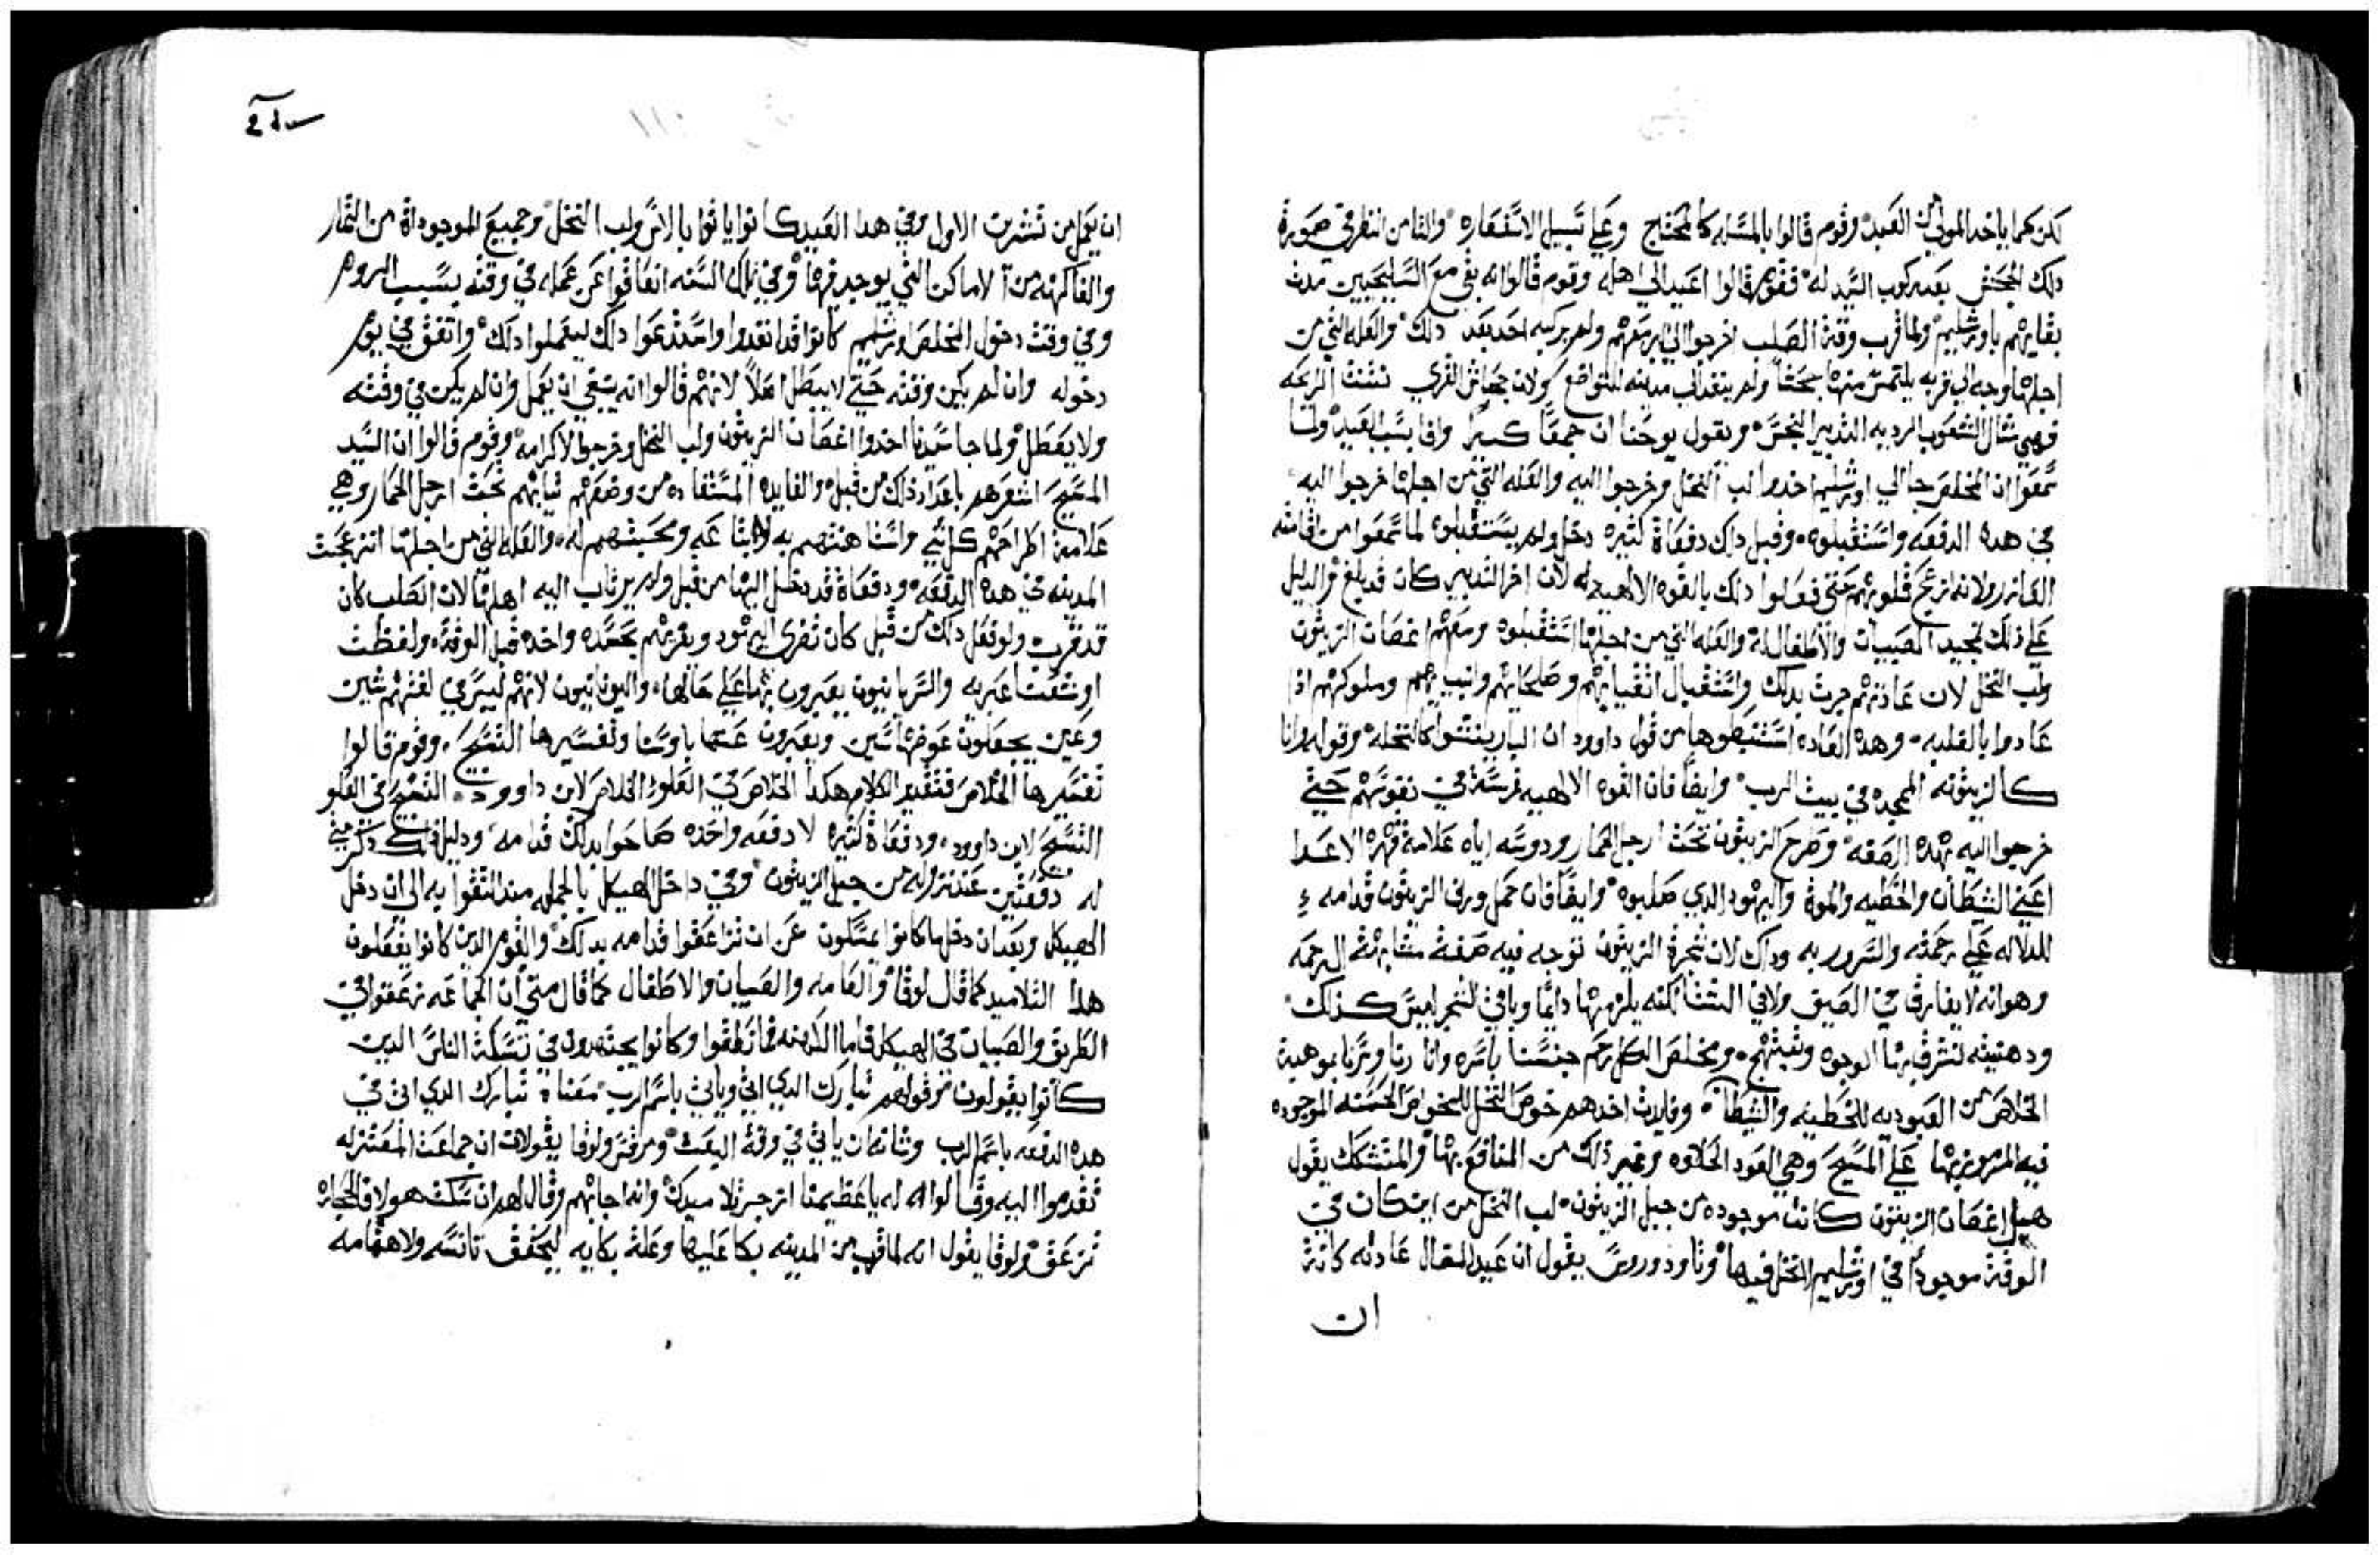 لكن كما ياخد المولي من العبد وقوم قالوا بالمسله كالمحتاج وعلي سبيل الاستعاره والنا من انتظر في صورة
دلك الجحش بعد ركوب السيد له فقوم قالوا اعيد الي اهله وقوم قالوا انه بقي مع السليحيين مدة
بقايهم باورشليم ولما قرب وقت الصلب اخرجوا الي معهم ولم يركبه احد بعد دلك والعله التي من
اجلها وجه الي قريه يلتمس منها جحشاً ولم ينفد الي مدينه للتواضع ولان جحاش القري
فهي مثال الشعوب الرديه التدبير النجس ويقول يوحنا ان جمعاً كبيراً وافا بسبب العيد ولما
سمعوا ان المخلص جا الي اورشليم اخدوا لب النخل وخرجوا اليه والعله التي من اجلها خرجوا اليه
في هده الدفعه واستقبلوه وقبل داك دفعاة كثيره دخل ولم يستقبلوه لما سمعوا من اقامته
العازر ولانه ازعج قلوبهم حتي فعلوا دلك بالقوه الالهيه له لان اخر التدبير كان قد بلغ والدليل
علي ذلك تمجيد الصبيان والاطفال له والعله التي من اجلها استقبلوه ومعهم اغصان الزيتون
ولب النخل لان عادتهم جرت بدلك واستقبال اتقيايهم وصلحايهم وانبيايهم وملوكهم اذا
عادوا بالغلبه وهده العاده استنبطوها من قول داوود ان البار ينتشوا كالنخله وقوله وانا
كالزيتونه الممجده في بيت الرب وايضاً فان القوه الالهيه غرسة في نفوسهم حتي
خرجوا اليه بهده الصفه وطرح الزيتون تحت ارجل الحمار ودوسه اياه علامة قهره الاعدا
اعني الشيطان والخطيه والموة واليهود الدي صلبوه وايضاً فان حمل ورق الزيتون قدامه
للدلاله علي رحمته والسرور به وداك لان شجرة الزيتون توجد فيه صفة مشابهة الرحمه
وهو انه لا يفارق في الصيف ولا في الشتا لكنه يلزمها دايماً وباقي الشجر ليس كذلك
ودهنيته تشرق بها الوجوه وتبتهج ومخلص الكل رحم جنسنا باسره وانا رنا وسرنا بموهبة
الخلاص من العبوديه للخطيه والشيطان وفايدة اخدهم خوص النخل للخواص الحسنه الموجوده
فيه المرموز بها علي المسيح وهي العود الحلاوه وغير ذلك من المنافع بها والمتشكك يقول
هل اغصان الزيتون كانت موجوده من جبل الزيتون لب النخل من اين كان في
الوقت موجوداً في اورشليم النخل فيها وتاودوروس يقول ان عيد المظال عادته كانت
ان
ان يعمل من تشرين الاول وفي هدا العيد كانوا ياتوا بالاس ولب النخل وجميع الموجوداة من الثمار
والفاكهه من الاماكن التي يوجد فيها وفي تلك السنه انعاقوا عن عمله في وقته بسبب الروم
وفي وقت دخول المخلص اورشليم كانوا قد انفدوا واستدعوا دلك ليعملوا دلك واتفق في يوم
دخوله وان لم يكن وقته حتي لا يبطل اصلاً لانهم قالوا انه ينبغي ان يعمل وان لم يكن في وقته
ولا يعطل ولما جا سيدنا اخدوا اغصان الزيتون ولب النخل وخرجوا لاكرامه وقوم قالوا ان السيد
المسيح اشعرهم باعداد ذلك من قبل والفايده المستفاده من وضعهم ثيابهم تحت ارجل الحمار وهي
علامة اطراحهم كل شي واستاهنتهم به اولابتاعه ومحبتهم له والعله التي من اجلها انزعجت
المدينه في هده الدفعه ودفعاة قد دخل اليها من قبل ولم يرتاب اليه اهلها لان الصلب كان
قد قرب ولو فعل دلك من قبل كان تفرى اليهود ويغريهم بحسده واخده قبل الوقت ولفظة
اوشعنا عبريه والسريانيون يعبرون بها علي حالها واليونانيون لانهم ليس في لغتهم شين
وعين يجعلون عوضها سين ويعبرون عنها باوسنا وتفسيرها التسبيح وقوم قالوا
تفسيرها الخلاص فتقدير الكلام هكدا الخلاص في العلو الخلاص لابن داوود التسبيح في العلو
التسبيح لابن داوود ودفعاة كثيره لا دفعه واحده صاحوا بدلك قدامه ودليل ذلك ذكر متي
له دفعتين عند نزوله من جبل الزيتون وفي داخل الهيكل بالجمله مند التقوا به الي ان دخل
الهيكل وبعد ان دخلها كانوا يمسكون عن ان يزاعقوا قدامه بدلك والقوم الدين كانوا يفعلون
هدا التلاميد كما قال لوقا والعامه والصبيان والاطفال كما قال متي ان الجماعه زعقوا في
الطريق والصبيان في الهيكل فاما الكهنه فما نطقوا وكانوا يجتهدون في تسكة الناس الدين
كانوا يقولون وقولهم تبارك الدي اتي وياتي باسم الرب معناه تبارك الدي اتي في
هده الدفعه باسم الرب وثانه ان ياتي في وقت البعث ومرقس ولوقا يقولان ان جماعت المعتزله
تقدموا اليه وقالوا له يا عظيمنا ازجر تلاميدك وانه اجابهم وقال لهم ان سكت هولا فالحجاره
تزعق ولوقا يقول انه لما قرب من المدينه بكا عليها وعلة بكايه ليحقق تانسه ولاهتمامه